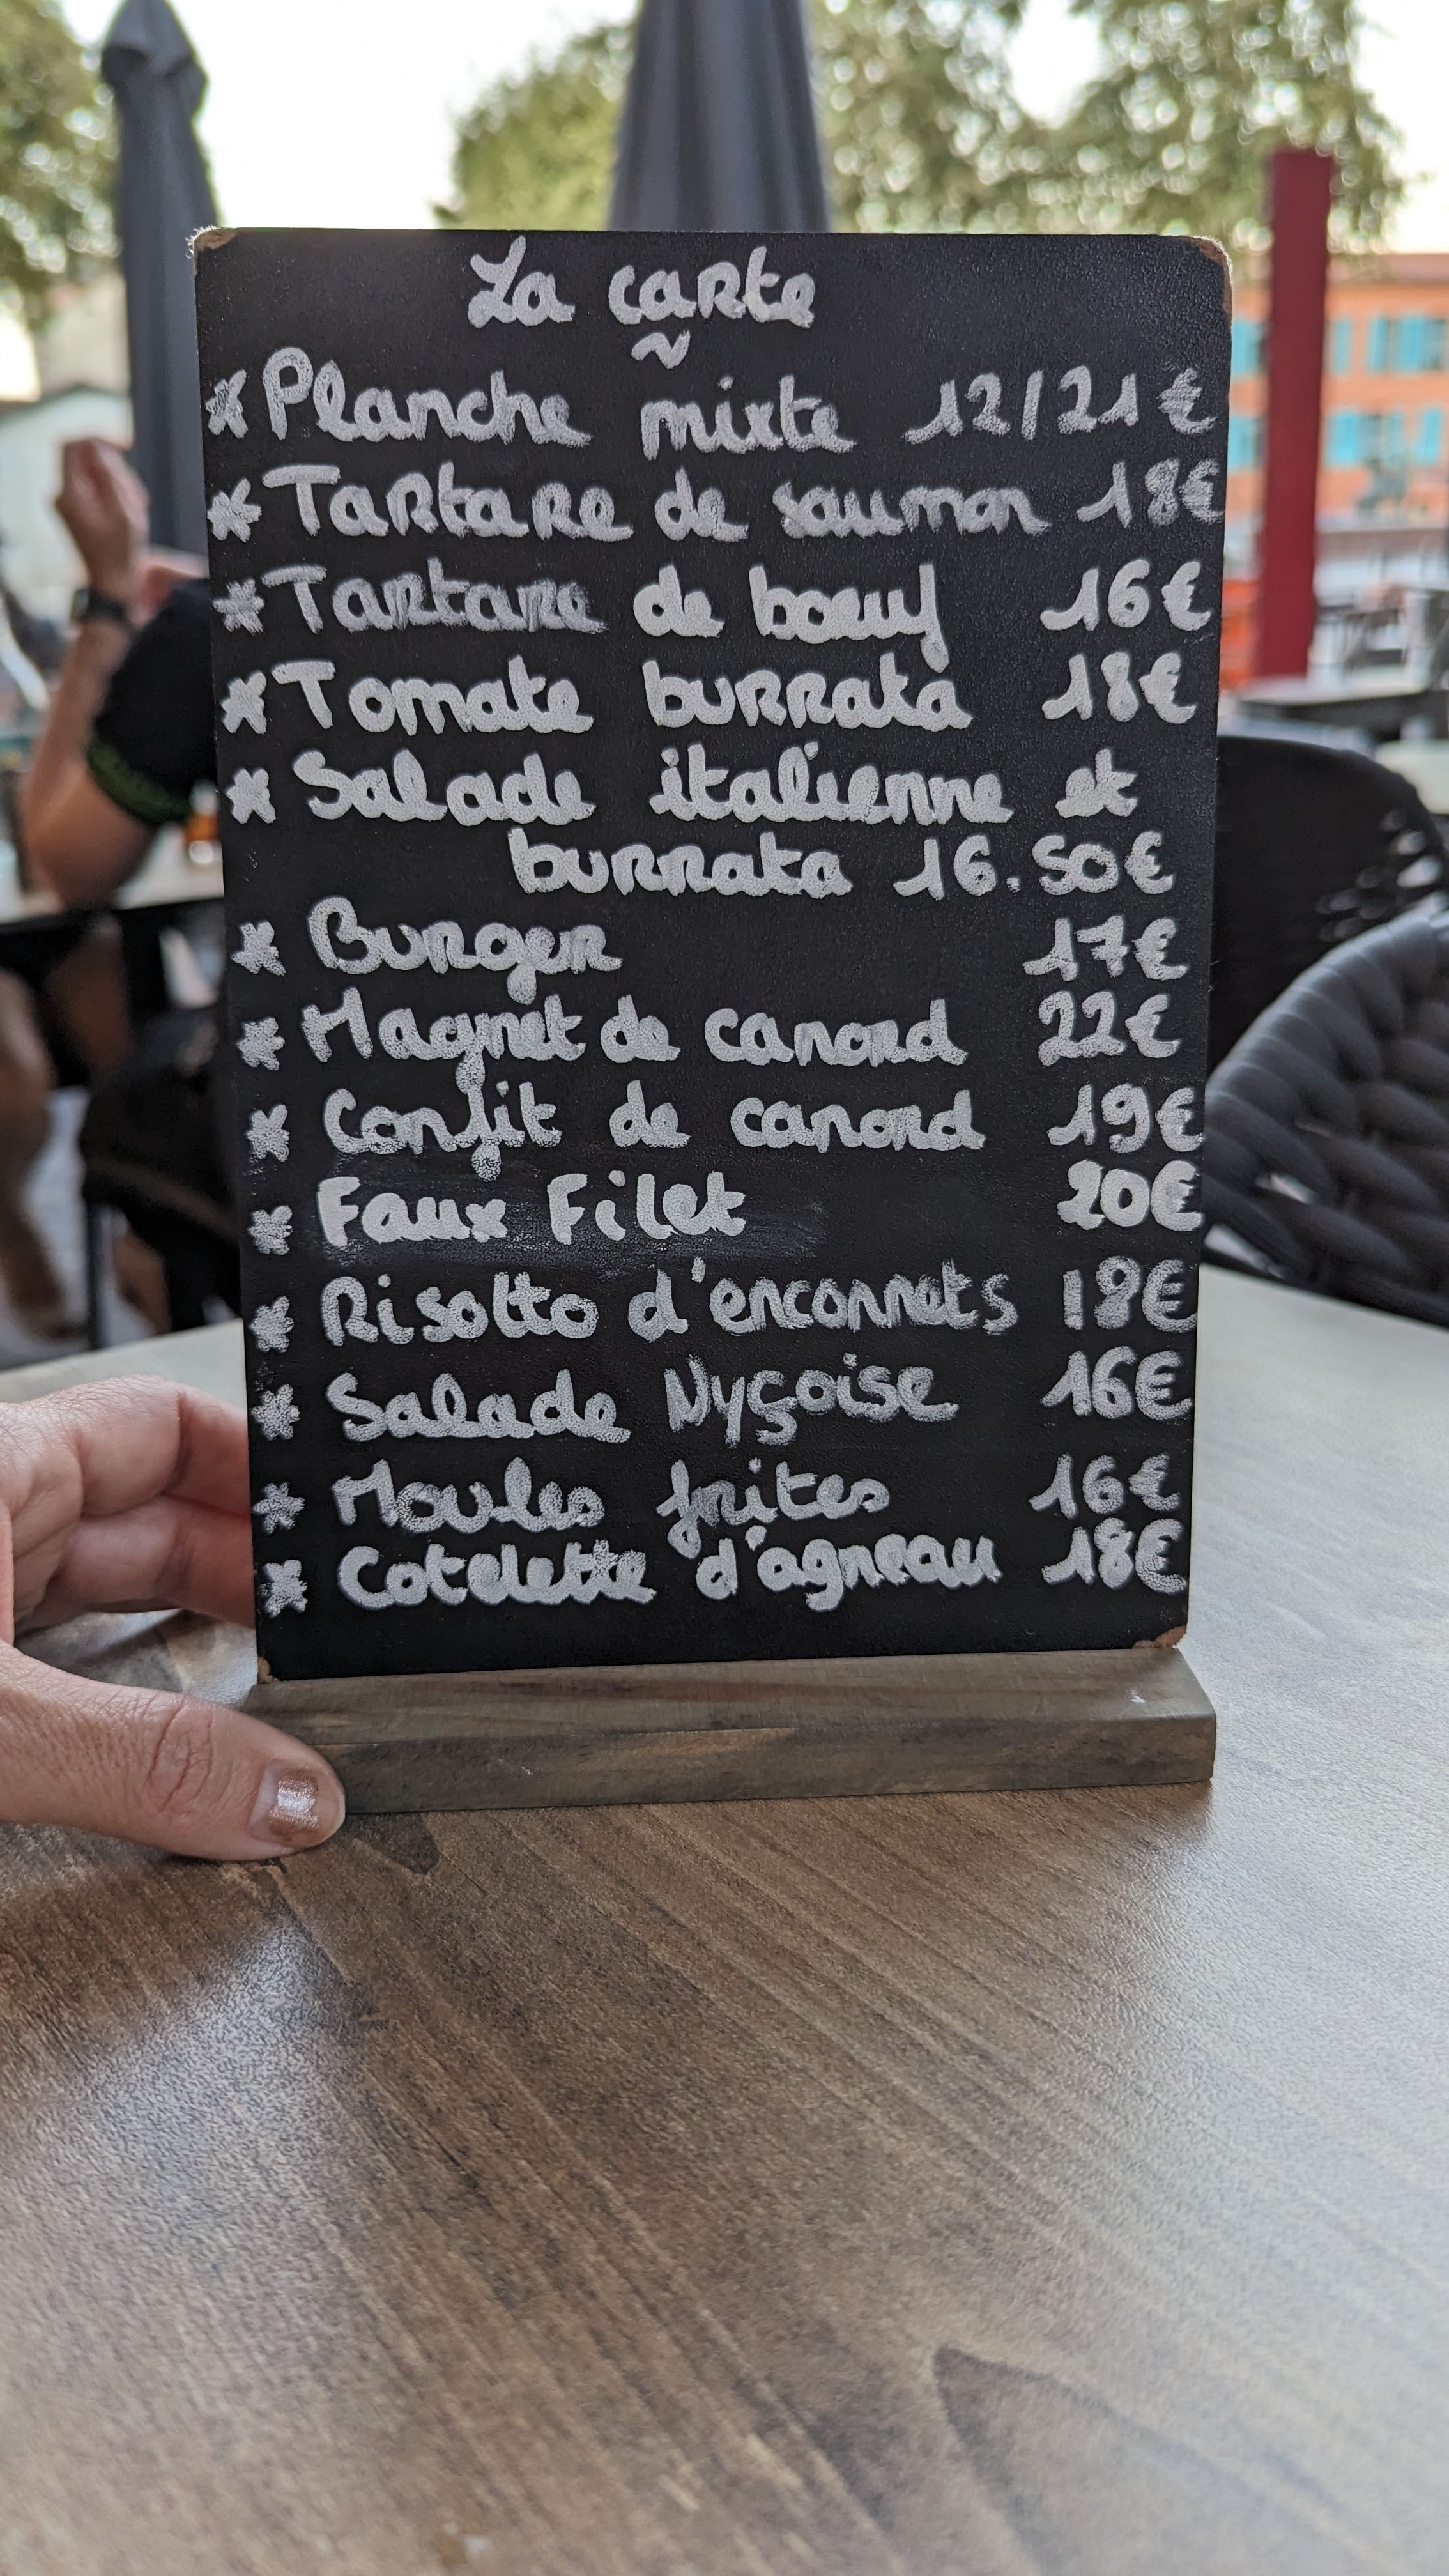 La carte
~
* Planche mixte 12/21€
* Tartare de saumon 18€
* Tartare de boeuf 16€
* Tomate burrata 18€
* Salade italienne et
burrata 16.50€
* Burger 17€
* Magret de canard 22€
* Confit de canard 19€
* Faux Filet 20€
* Risotto d'enconnets 18€
* Salade Nyçoise 16€
* Moules frites 16€
* Cotelette d'agneau 18€